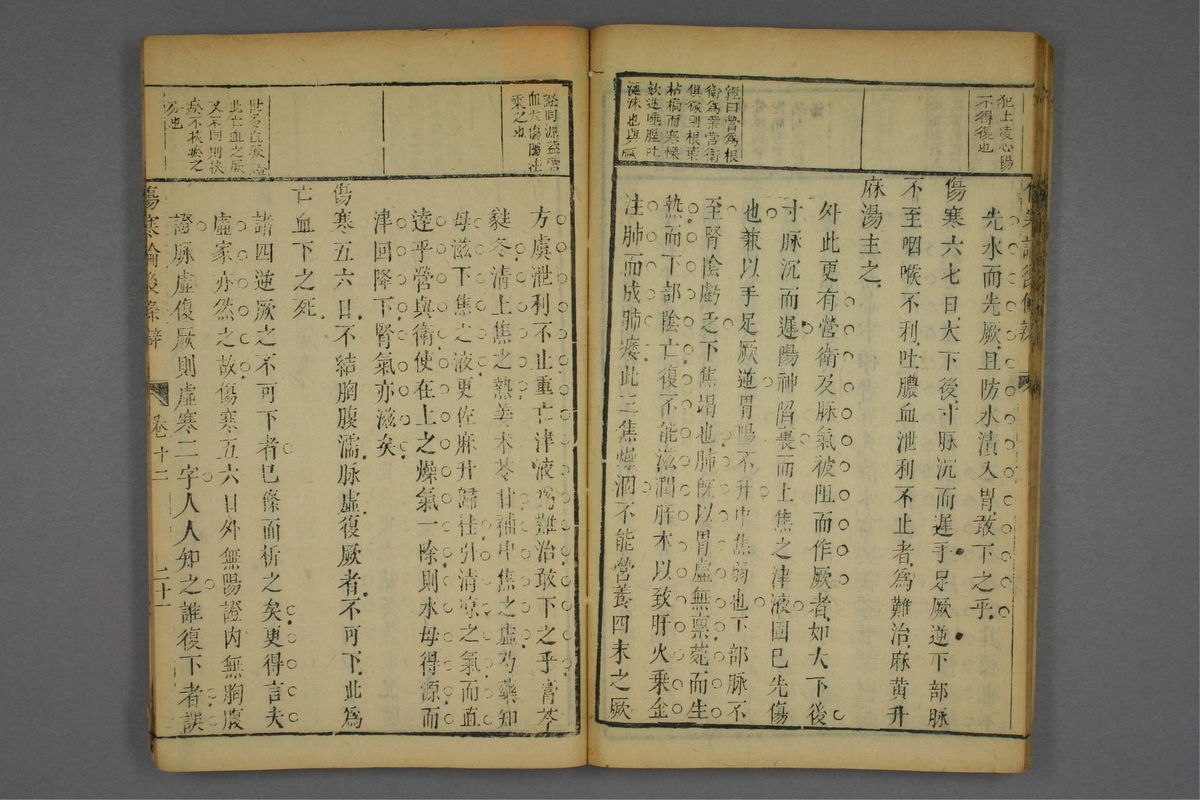 犯上凌心陽
不得復也
經曰營爲根
衛爲葉營衛
俱微則根葉
枯槁而寒慄
欬逆唾腥吐
涎沫也與厥
先水而先厥且防水漬入胃敢下之乎
傷寒六七日大下後寸脉沉而遲手足厥逆下部脉
不至咽喉不利吐膿血泄利不止者爲難治麻黃升
麻湯主之
外此更有營衛及脉氣被阻而作厥者如大下後
寸脉沉而遲陽神陷喪而上焦之津液固已先傷
也兼以手足厥逆胃陽不升中焦弱也下部脉不
至腎陰虧乏下焦竭也肺旣以胃虛無禀薨而生
熱而下部陰亡復不能滋潤肝木以致肝火乗金
注肺而成肺痿此三焦燥涸不能營養四末之厥
證同源蓋營
血大傷陽往
乘之也
方虞泄利不止重亡津液爲難治敢下之乎膏芩
蕤冬清上焦之熱姜木苓甘補中焦之虛芍藥知
母滋下焦之液更佐麻升歸桂引清凉之氣而直
逹乎營與衛使在上之燥氣一除則水母得源而
津回降下腎氣亦滋矣
傷寒五六日不結胸腹濡脉虛復厥者不可下此爲
亡血下之死
此亡血之厥
又不同則挾
瘀不挾瘀之
分也
諸四逆厥之不可下者已條而析之矣更得言夫
虛家亦然之故傷寒五六日外無陽證内無胸腹
證脉虛復厥則虛寒二字人人知之誰復下者誤
傷寒論後條辯
卷十二
二十一